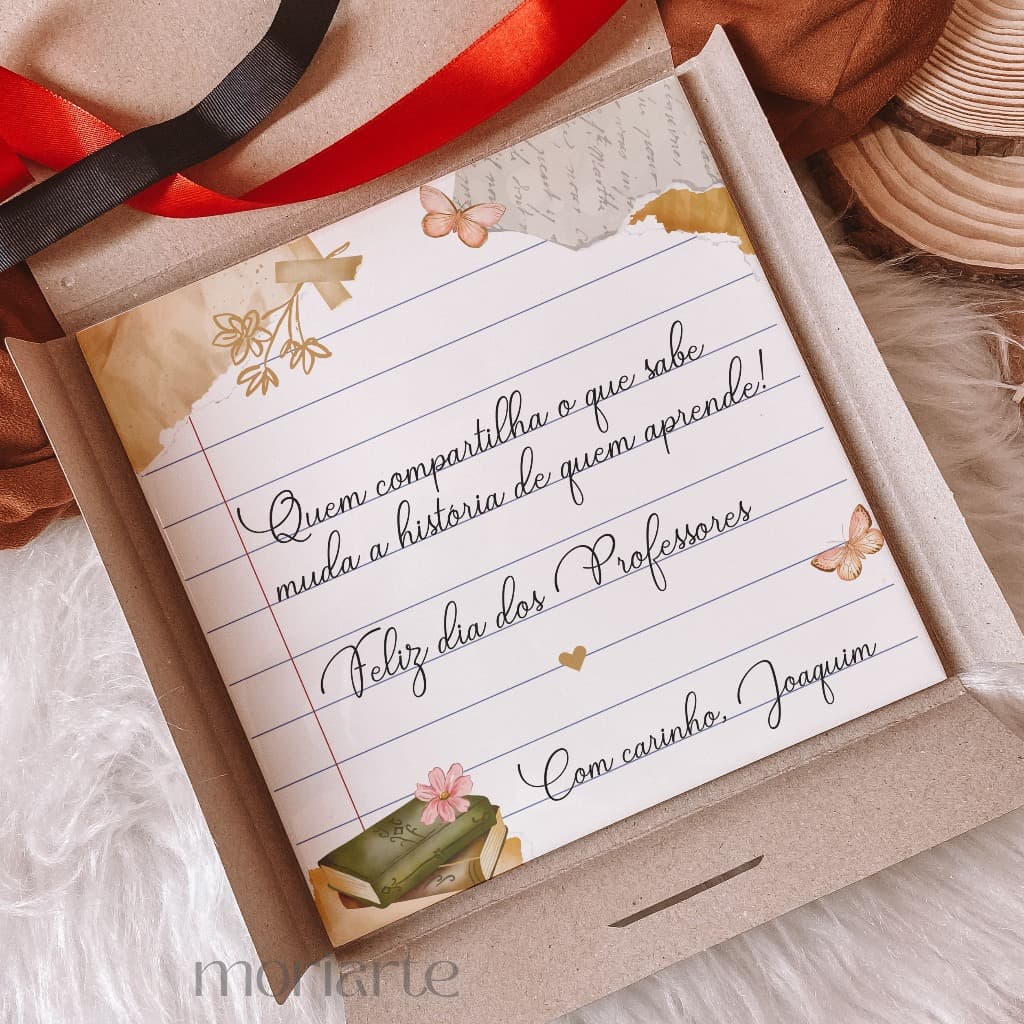 Quem compartilha o que sabe
muda a história de quem aprende!
Feliz dia dos Professores
Com carinho, Joaquim
moriarte